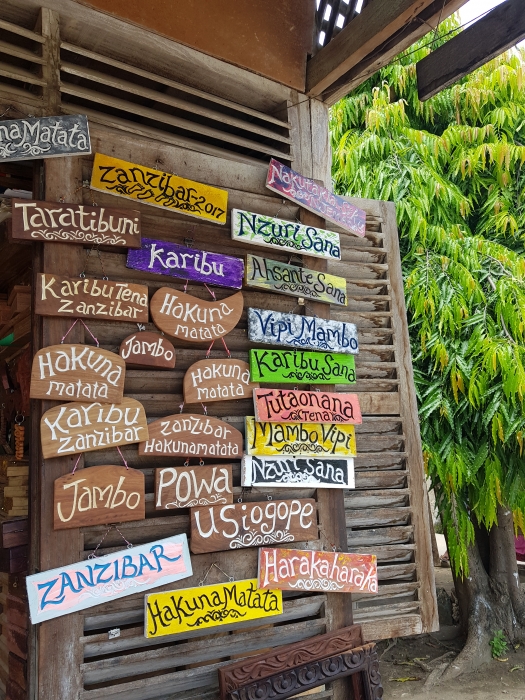 na Matata
Zanzibar 2017
Nakutakia
Taratibuni
Nzuri Sana
Karibu
Ahsante Sana
Karibu Tena
Zanzibar
Hakuna
matata
Vipi Mambo
Jambo
Karibu Sana
Hakuna
matata
Hakuna
matata
Tutaonana
Tena
Karibu
Zanzibar
Zanzibar
Hakunamatata
Mambo Vipi
Nzuri Sana
Jambo
Powa
Usiogope
ZANZIBAR
Harakaharaka
Hakuna Matata